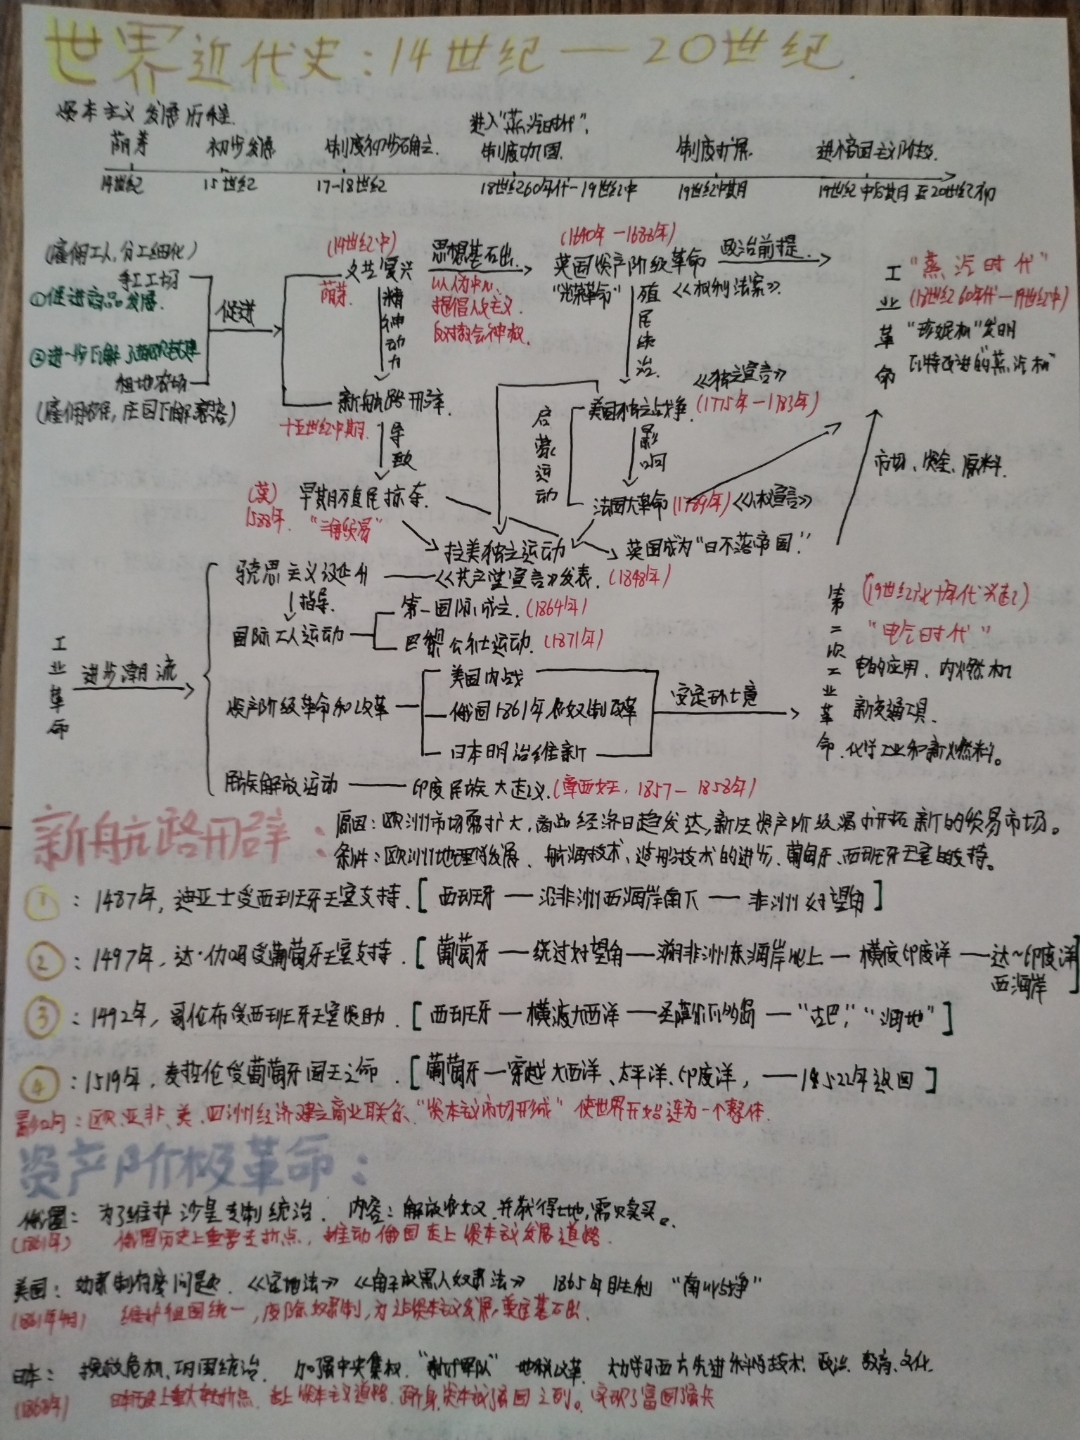 世界近代史：14世纪——20世纪
资本主义发展历程
萌芽 初步发展 制度初步确立 进入"蒸汽时代"，制度巩固 制度扩展 进入帝国主义阶段
14世纪 15世纪 17-18世纪 18世纪60年代-19世纪中 19世纪中期 19世纪中后期至20世纪初
(雇佣工人，分工细化)
手工工场
①促进商品发展
②进一步瓦解了
租地农场
(雇佣农民，庄园瓦解)
促进
(14世纪中)
文艺复兴
萌芽
精神动力
新航路开辟
十五世纪中期
导致
思想基石出
以人为中心
提倡人文主义
反对教会神权
(1640年-1688年)
英国资产阶级革命
"光荣革命" 《权利法案》
政治前提
殖民统治
《独立宣言》
美国独立战争(1775年-1783年)
影响
启蒙运动
法国大革命(1789年)《人权宣言》
工业革命
"蒸汽时代"
(18世纪60年代-19世纪中)
"珍妮机"发明
瓦特改进的"蒸汽机"
市场、资金、原料
(英)
1588年
早期殖民掠夺
"三角贸易"
拉美独立运动 英国成为"日不落帝国"
工业革命
进步潮流
马克思主义诞生——《共产党宣言》发表(1848年)
指导
国际工人运动 第一国际成立(1864年)
巴黎公社运动(1871年)
资产阶级革命和改革 美国内战
俄国1861年农奴制改革
日本明治维新
安定环境
民族解放运动——印度民族大起义(章西女王，1857-1858年)
第二次工业革命
(19世纪六七十年代兴起)
"电气时代"
电的应用、内燃机
新交通工具
化学工业和新燃料。
新航路开辟：
原因：欧洲市场需扩大，商品经济日趋发达，新庄资产阶级渴求开拓新的贸易市场。
条件：欧洲地理发展、航海技术、造船技术的进步、葡萄牙、西班牙王室的支持。
①：1487年，迪亚士受西班牙王室支持．[西班牙——沿非洲西海岸南下——非洲好望角]
②：1497年，达·伽吗受葡萄牙王室支持．[葡萄牙—绕过好望角—溯非洲东海岸北上—横渡印度洋—达~印度洋西海岸]
③：1492年，哥伦布受西班牙王室资助．[西班牙—横渡大西洋—圣萨尔瓦多岛—"古巴"，"海地"]
④：1519年，麦哲伦受葡萄牙国王之命．[葡萄牙—穿越大西洋、太平洋、印度洋，——1522年返回]
影响：欧、亚、非、美、四洲经济建立商业联系、"资本主义市场形成"使世界开始连为一个整体．
资产阶极革命：
俄国：为了维护沙皇专制统治．内容：解放农奴，并获得土地，需赎买。
(1861年) 俄国历史上重要转折点，推动俄国走上资本主义发展道路．
美国：奴隶制存废问题《宅地法》《解放黑人奴隶法》1865年胜利"南北战争"
(1861年4月) 维护祖国统一，废除奴隶制，为资本主义发展奠定基石出．
日本：挽救危机，巩固统治．加强中央集权．"新式军队"地税改革．大力学习西方先进科学技术、政治、教育、文化．
(1868年) 日本历史上重大转折点．走上资本主义道路．跻身资本主义强国之列。实现了富国强兵